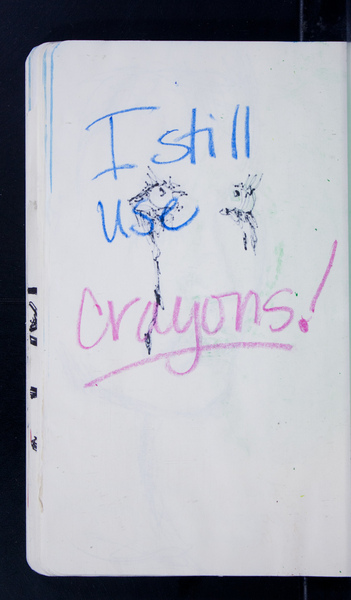 I still
use
crayons!